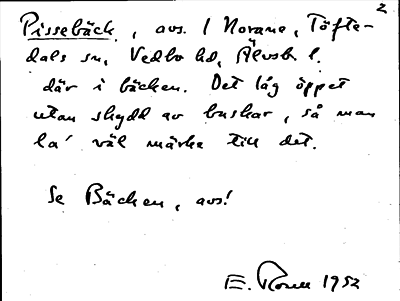 2
Pissebäck, avs. / Norane, Töfte-
dals sn, Vedbo hd, Älvsb l.
där i bäcken. Det låg öppet
utan skydd av buskar, så man
la' väl märke till det.
Se Bäcken, avs!
E. 1952